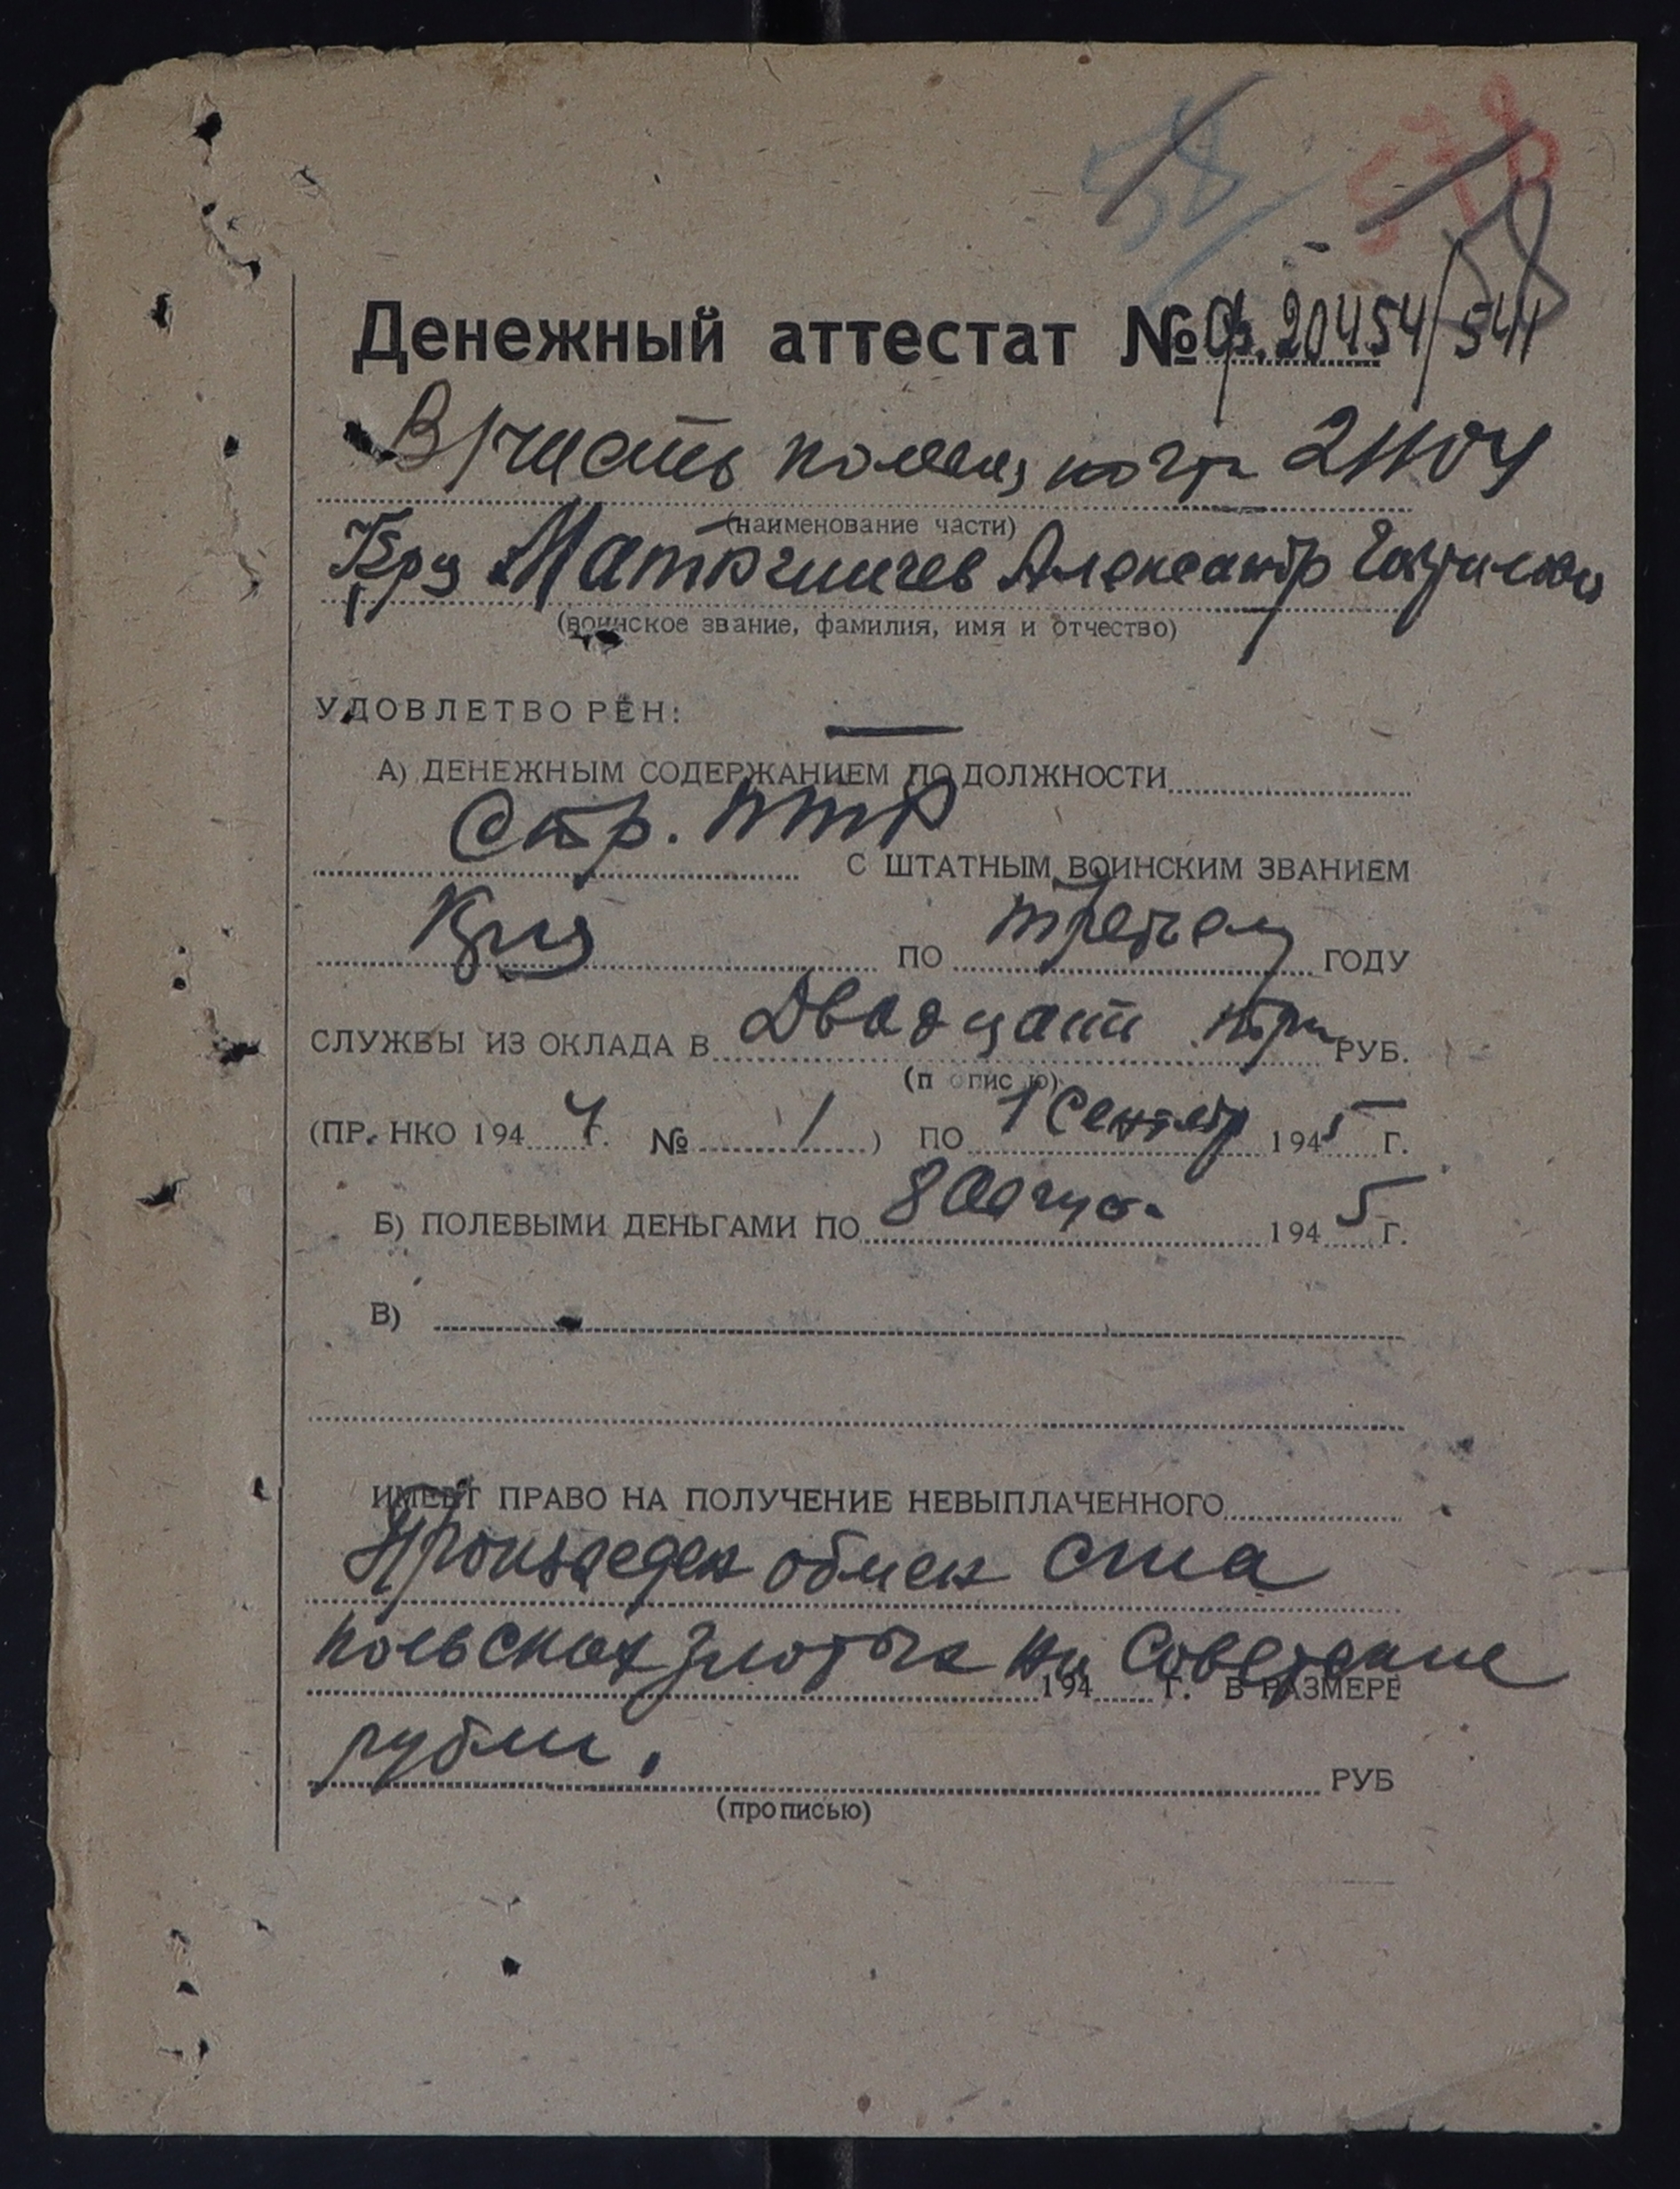 58 578
58
Денежный аттестат № Ф.20454/544
В/часть полев, почт 21104
(наименование части)
Кр-ц Александр
(воинское звание, фамилия, имя и отчество)
УДОВЛЕТВОРЕН: —
А) ДЕНЕЖНЫМ СОДЕРЖАНИЕМ ПО ДОЛЖНОСТИ
Стр. ПТР С ШТАТНЫМ ВОИНСКИМ ЗВАНИЕМ
ПО третьему ГОДУ
СЛУЖБЫ ИЗ ОКЛАДА В Двадцать три РУБ.
(п опис ю)
(ПР. НКО 194 4 г. № 1 ) ПО 1 Сентябр 1945 Г.
Б) ПОЛЕВЫМИ ДЕНЬГАМИ ПО 8 Авгус. 194 5 Г.
В)
ИМЕЕТ ПРАВО НА ПОЛУЧЕНИЕ НЕВЫПЛАЧЕННОГО
Произведен обмен ста
польских злотых на Советские
194 Г. В РАЗМЕРЕ
рубли. РУБ
(прописью)